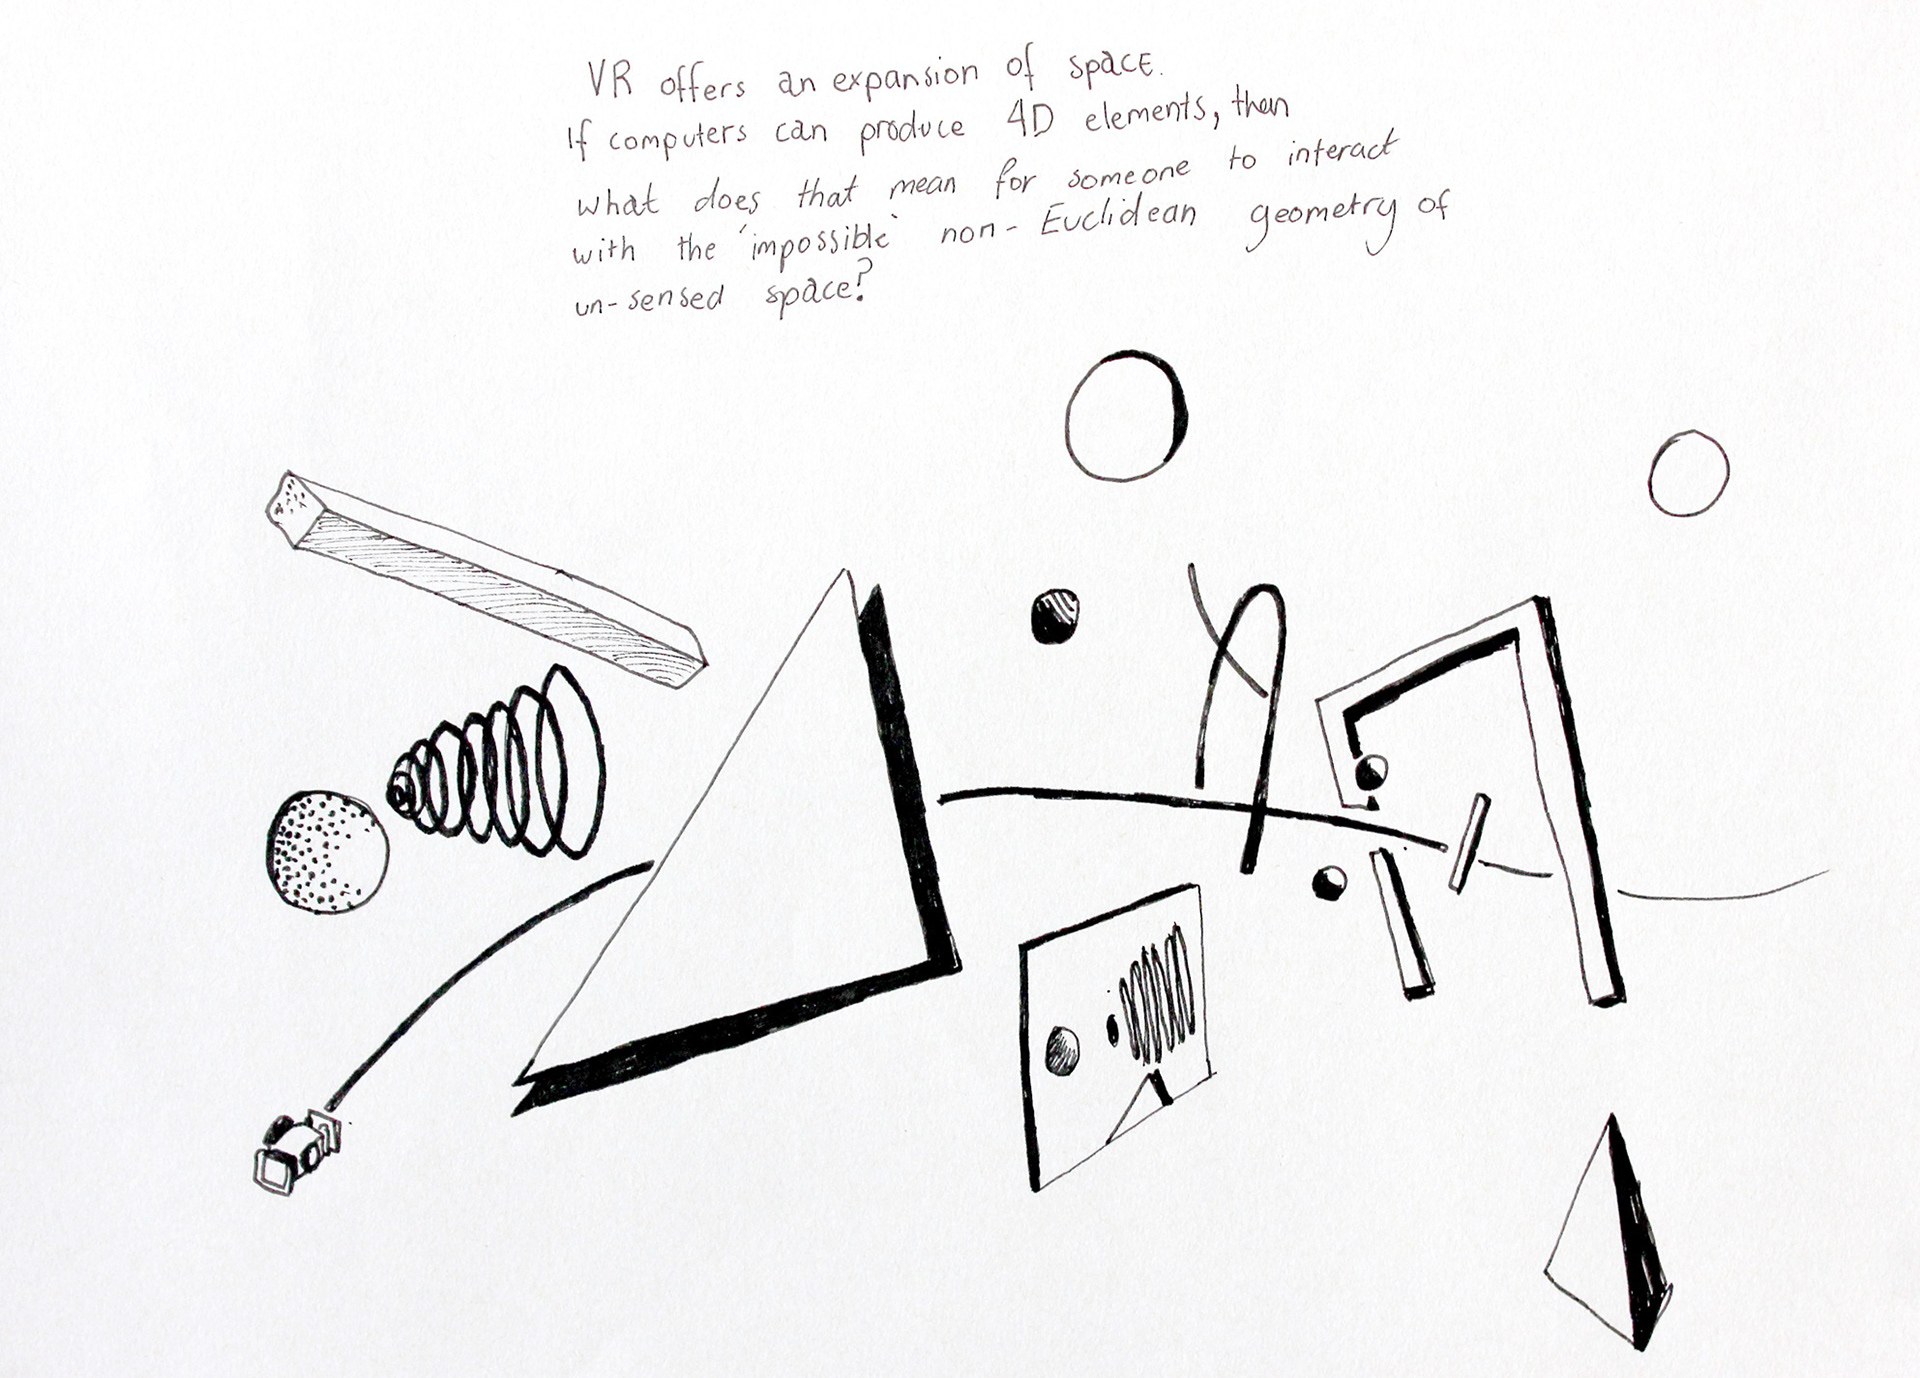 VR offers an expansion of space.
If computers can produce 4D elements, then
what does that mean for someone to interact
with the 'impossible' non-Euclidean geometry of
un-sensed space?